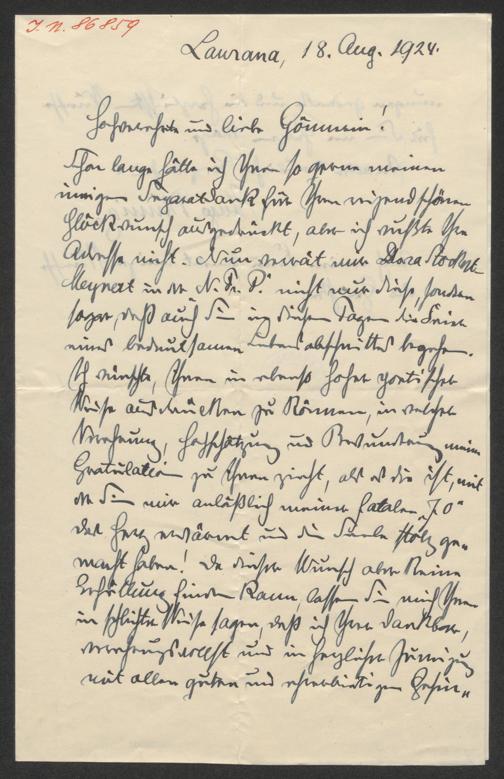 I. N. 86859
Laurana, 18. Aug. 1924.
Hochverehrte und liebe Gönnerin!
Schon lange hätte ich Ihnen so gerne meinen
innigen Separatdank für Ihren reizend schönen
Glückwunsch ausgedrückt, aber ich wußte Ihre
Adresse nicht. Nun verrät mir Dora Stockert-
Meynert in der „N. Fr. P." nicht nur diese, sondern
sogar, daß auch Sie in diesen Tagen die Feier
eines bedeutsamen Lebensabschnittes begehen.
Ich wünschte, Ihnen in ebenso hoher poetischer
Weise ausdrücken zu können, in welcher
Verehrung, Hochschätzung und Bewunderung meine
Gratulation zu Ihnen zieht, als es die ist, mit
der Sie mir anläßlich meiner fatalen „70"
das Herz erwärmt und die Seele stolz ge-
macht haben! Da dieser Wunsch aber keine
Erfüllung finden kann, lassen Sie mich Ihnen
in schlichter Weise sagen, daß ich Ihrer dankbar,
verehrungsvollst und in herzlicher Zuneigung
mit allen guten und ehrerbietigen Gesin-